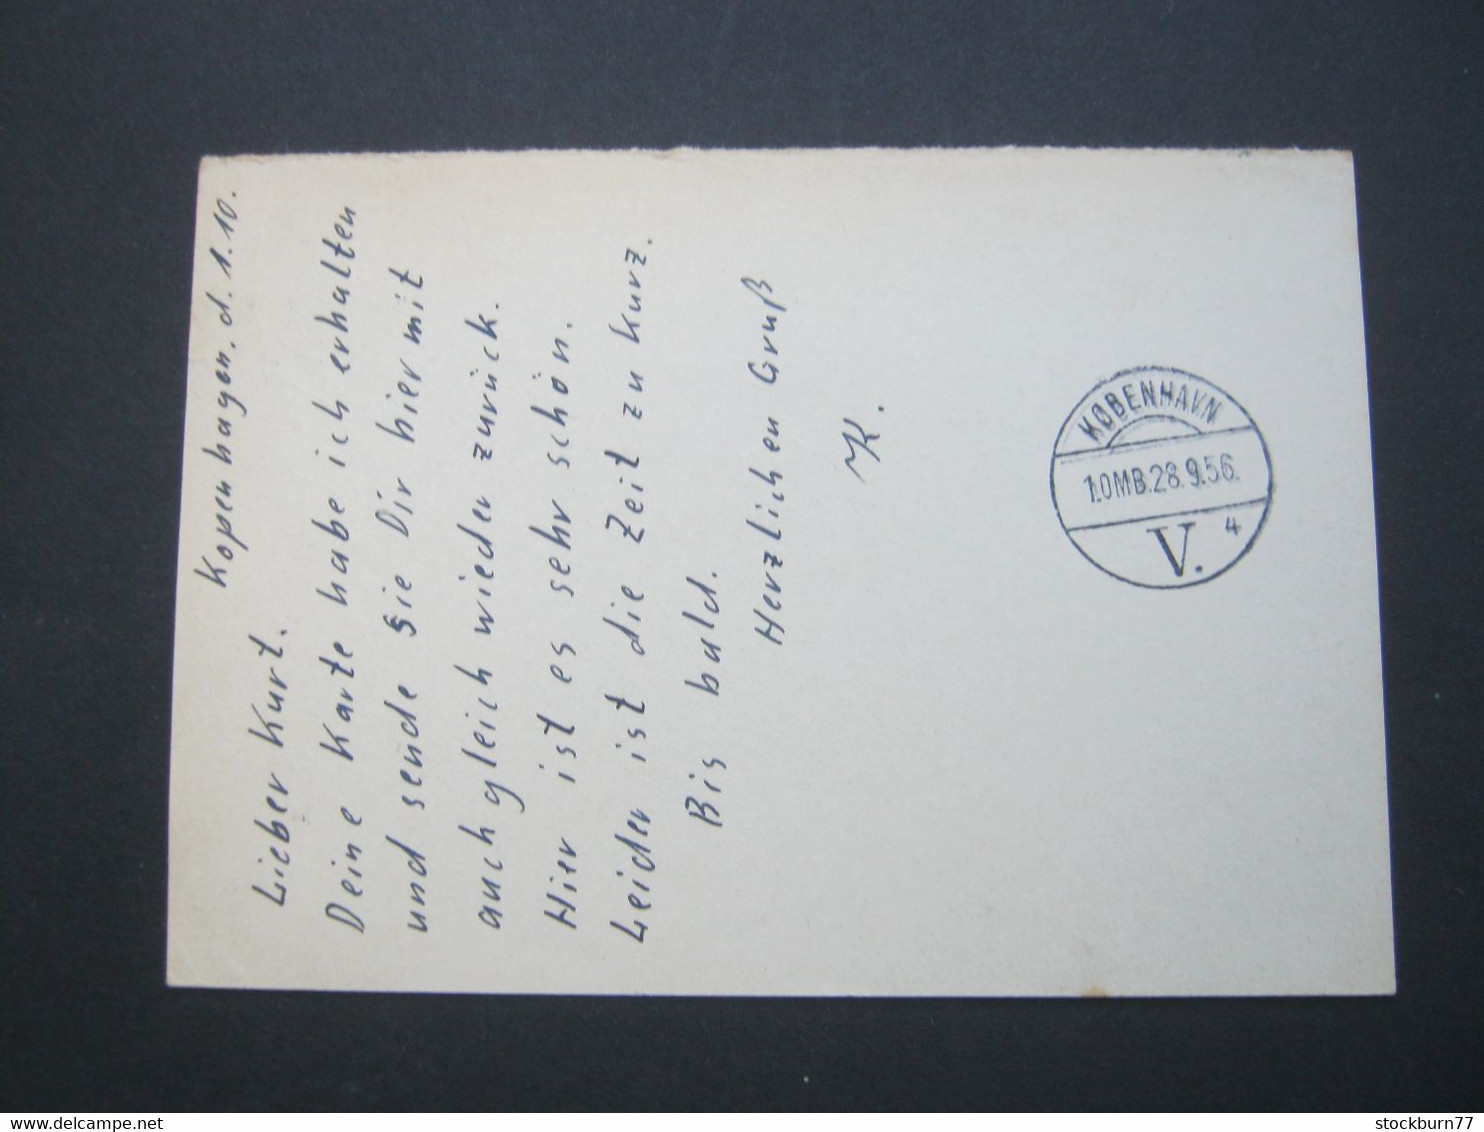 Kopenhagen. d. 1. 10.
Lieber Kurt.
Deine Karte habe ich erhalten
und sende sie Dir hier mit
auch gleich wieder zurück.
Hier ist es sehr schön.
Leider ist die Zeit zu kurz.
Bis bald.
Herzlichen Gruß
K.
KØBENHAVN
10MB.28.9.56.
V. 4
delcampe.net
stockburn77